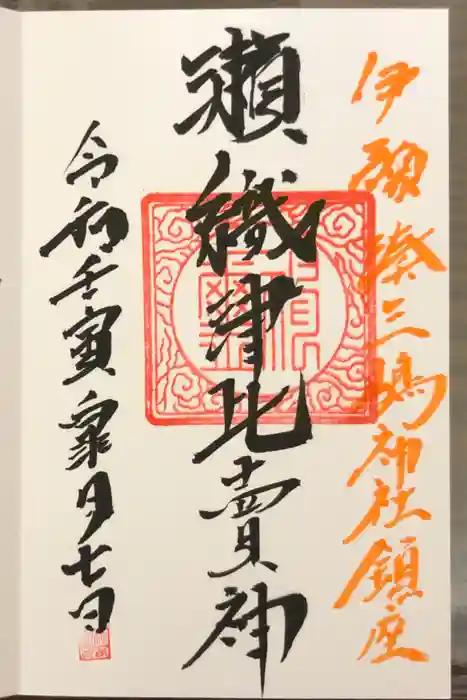 伊豫湊三嶋神社鎮座
瀨織津比賣神
令和壬寅皐月七日